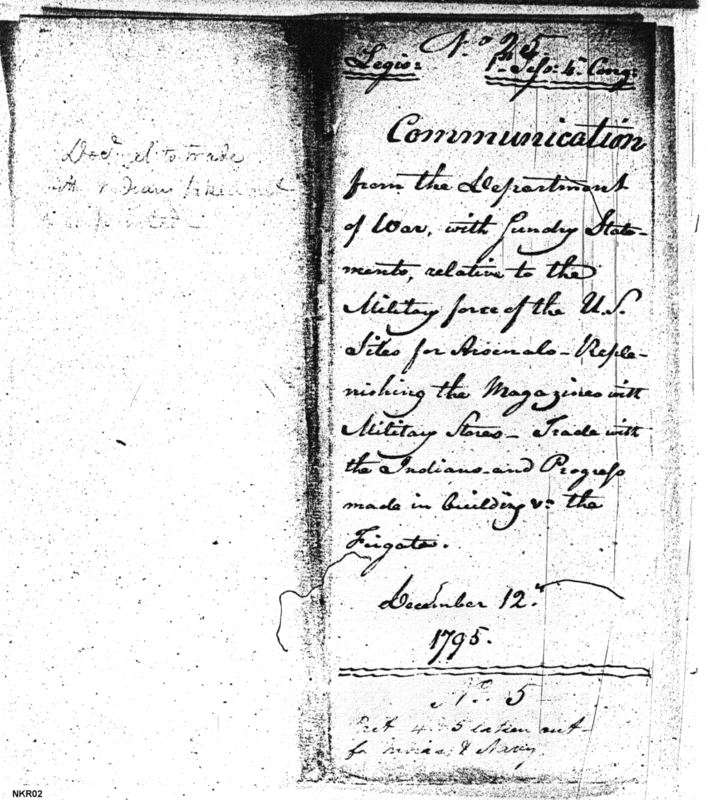 Doct. rel. to trade
with Indians
No. 25.
Legis: 1st Sess: 4th Cong:
Communication
from the Department
of War, with Sundry State-
ments, relative to the
Military force of the U.S.
Sites for Arsenals - Reple-
nishing the Magazines with
Military Stores - Trade with
the Indians - and Progress
made in building &c. the
Frigates.
December 12th
1795.
No. 5
4 & 5 taken out
for Indian & Navy
NKR02